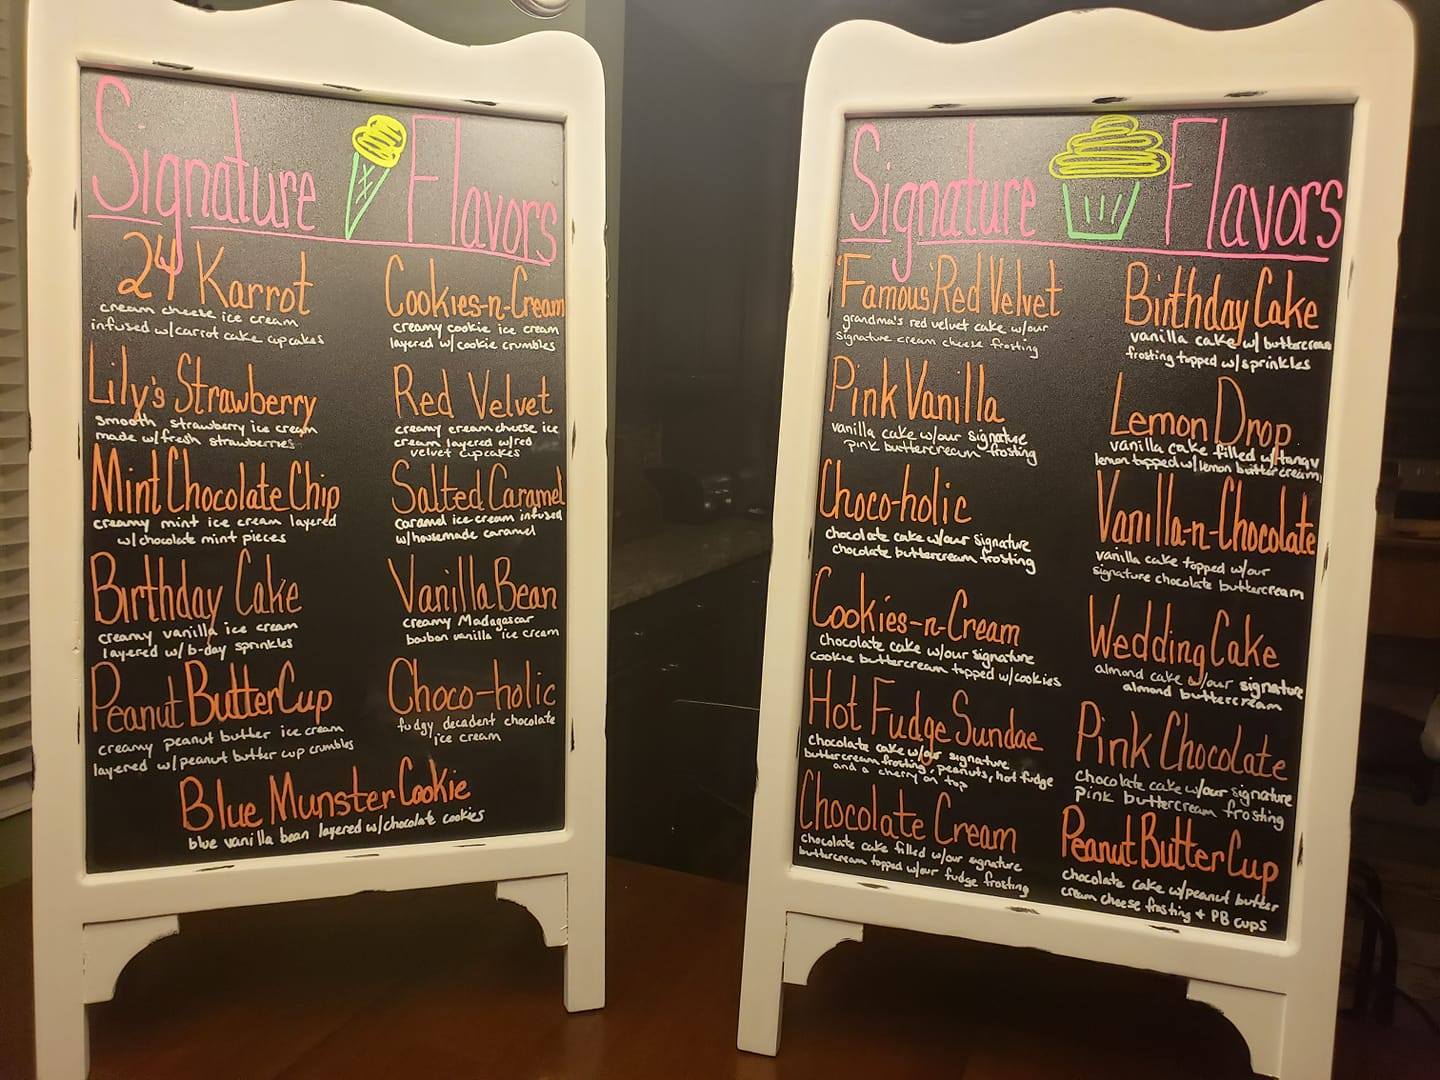 Signature Flavors
24 Karrot
cream cheese ice cream
infused w/carrot cake cupcakes
Lily's Strawberry
smooth strawberry ice cream
made w/fresh strawberries
Mint Chocolate Chip
creamy mint ice cream layered
w/chocolate mint pieces
Birthday Cake
creamy vanilla ice cream
layered w/ b-day sprinkles
Peanut Butter Cup
creamy peanut butter ice cream
layered w/peanut butter cup crumbles
Cookies-n-Cream
creamy cookie ice cream
layered w/ cookie crumbles
Red Velvet
creamy creamcheese ice
cream layered w/red
velvet cupcakes
Salted Caramel
caramel ice cream infused
w/housemade caramel
Vanilla Bean
creamy Madagascar
bourbon vanilla ice cream
Choco-holic
fudgy decadent chocolate
ice cream
Blue Munster Cookie
blue vanilla bean layered w/chocolate cookies
Signature Flavors
'Famous' Red Velvet
grandma's red velvet cake w/our
signature cream cheese frosting
Pink Vanilla
vanilla cake w/our signature
pink buttercream frosting
Choco-holic
chocolate cake w/our signature
chocolate buttercream frosting
Cookies-n-Cream
chocolate cake w/our signature
cookie buttercream topped w/cookies
Hot Fudge Sundae
chocolate cake w/our signature
buttercream frosting, peanuts, hot fudge
and a cherry on top
Chocolate Cream
chocolate cake filled w/our signature
buttercream topped w/our fudge frosting
Birthday Cake
vanilla cake w/ buttercream
frosting topped w/sprinkles
Lemon Drop
vanilla cake filled w/tangy
lemon topped w/ lemon buttercream
Vanilla-n-Chocolate
vanilla cake topped w/our
signature chocolate buttercream
Wedding Cake
almond cake w/our signature
almond buttercream
Pink Chocolate
chocolate cake w/our signature
pink buttercream frosting
Peanut Butter Cup
chocolate cake w/peanut butter
cream cheese frosting + PB cups